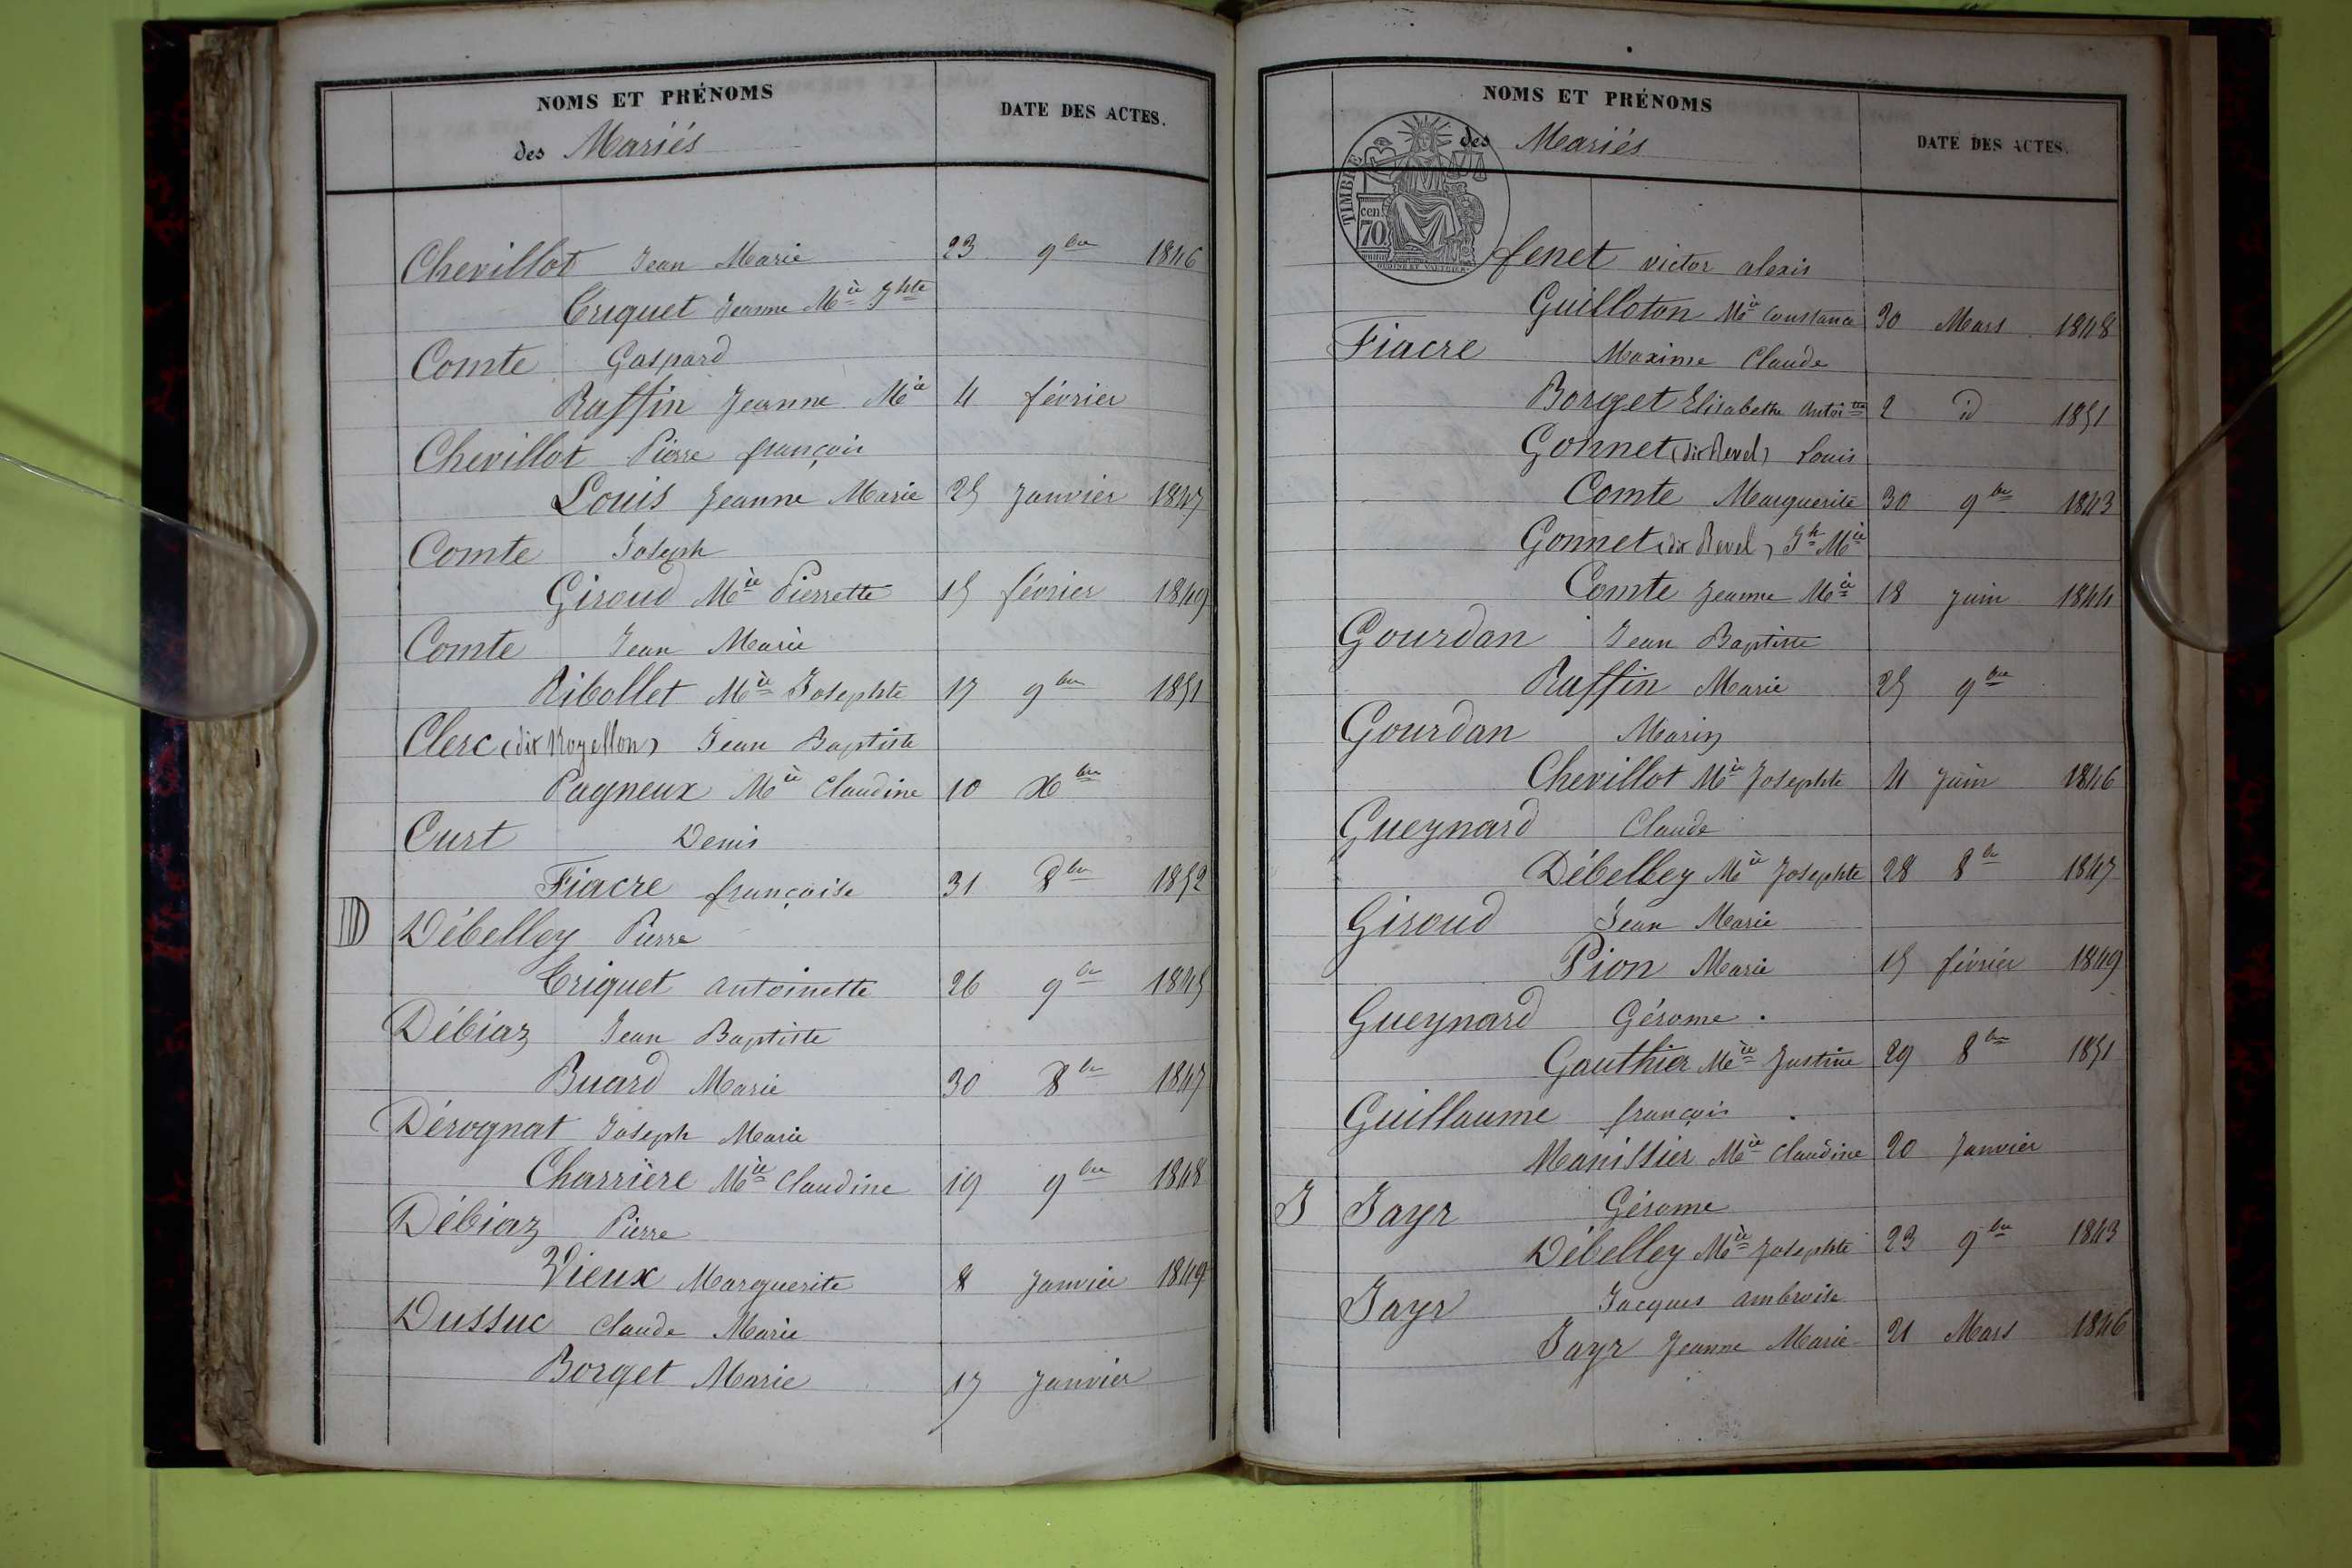 NOMS ET PRÉNOMS
des Mariés
DATE DES ACTES.
Chevillot Jean Marie 23 9bre 1846
Criquet Jeanne Mie Jphte
Comte Gaspard
Raffin Jeanne Mie 4 février
Chevillot Pierre françois
Louis Jeanne Marie 25 Janvier 1847
Comte Joseph
Giroud Mie Pierrette 15 février 1849
Comte Jean Marie
Ribollet Mie Josephte 17 9bre 1851
Clerc (dit Royellon) Jean Baptiste
Pagneux Mie Claudine 10 Xbre
Curt Denis
Fiacre françoise 31 8bre 1852
D Débelley Pierre
Criquet antoinette 26 9bre 1845
Débiaz Jean Baptiste
Buard Marie 30 8bre 1847
Dérognat Joseph Marie
Charrière Mie Claudine 19 9bre 1848
Débiaz Pierre
Vieux Marguerite 8 Janvier 1849
Dussuc Claude Marie
Borget Marie 17 Janvier
NOMS ET PRÉNOMS
des Mariés
DATE DES ACTES.
TIMBRE
cent
70
fenet victor alexis
Guilloton Mie Constance 30 Mars 1848
Fiacre Maxime Claude
Borget Elisabeth antoitte 2 id 1851
Gonnet (dit Revel) Louis
Comte Marguerite 30 9bre 1843
Gonnet (dit Revel) Jh Mie
Comte Jeanne Mie 18 Juin 1844
Gourdan Jean Baptiste
Raffin Marie 25 9bre
Gourdan Marin
Chevillot Mie Josephte 4 Juin 1846
Gueynard Claude
Débelley Mie Josephte 28 8bre 1847
Giroud Jean Marie
Pion Marie 15 février 1849
Gueynard Gérome .
Gauthier Mie Justine 29 8bre 1851
Guillaume françois .
Manissier Mie Claudine 20 Janvier
J Jayr Gérome
Débelley Mie Josephte 23 9bre 1843
Jayr Jacques ambroise
Jayr Jeanne Marie 21 Mars 1846